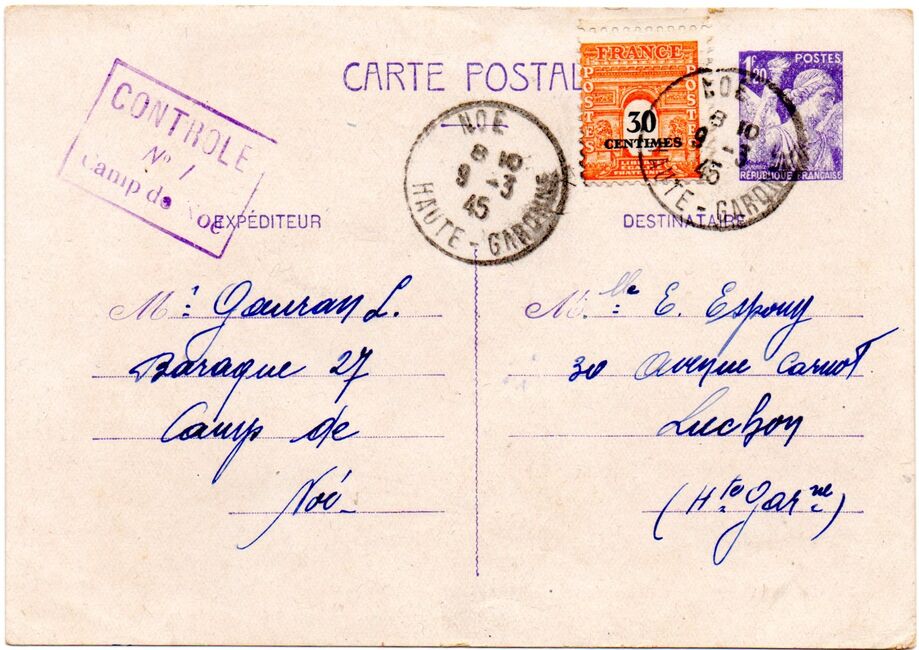 CONTROLE
N° 1
Camp de Noé
CARTE POSTAL
FRANCE
POSTES
POSTES
30
CENTIMES
POSTES
1F20
RÉPUBLIQUE FRANÇAISE
NOE
8 10
9 -3
45
HAUTE - GARONNE
NOE
8 10
9 -3
45
HAUTE - GARONNE
EXPÉDITEUR
Mr Gauran L.
Baraque 27
Camp de
Noé
DESTINATAIRE
Mlle E. Espouy
30 Avenue Carnot
Luchon
(Hte Garne)